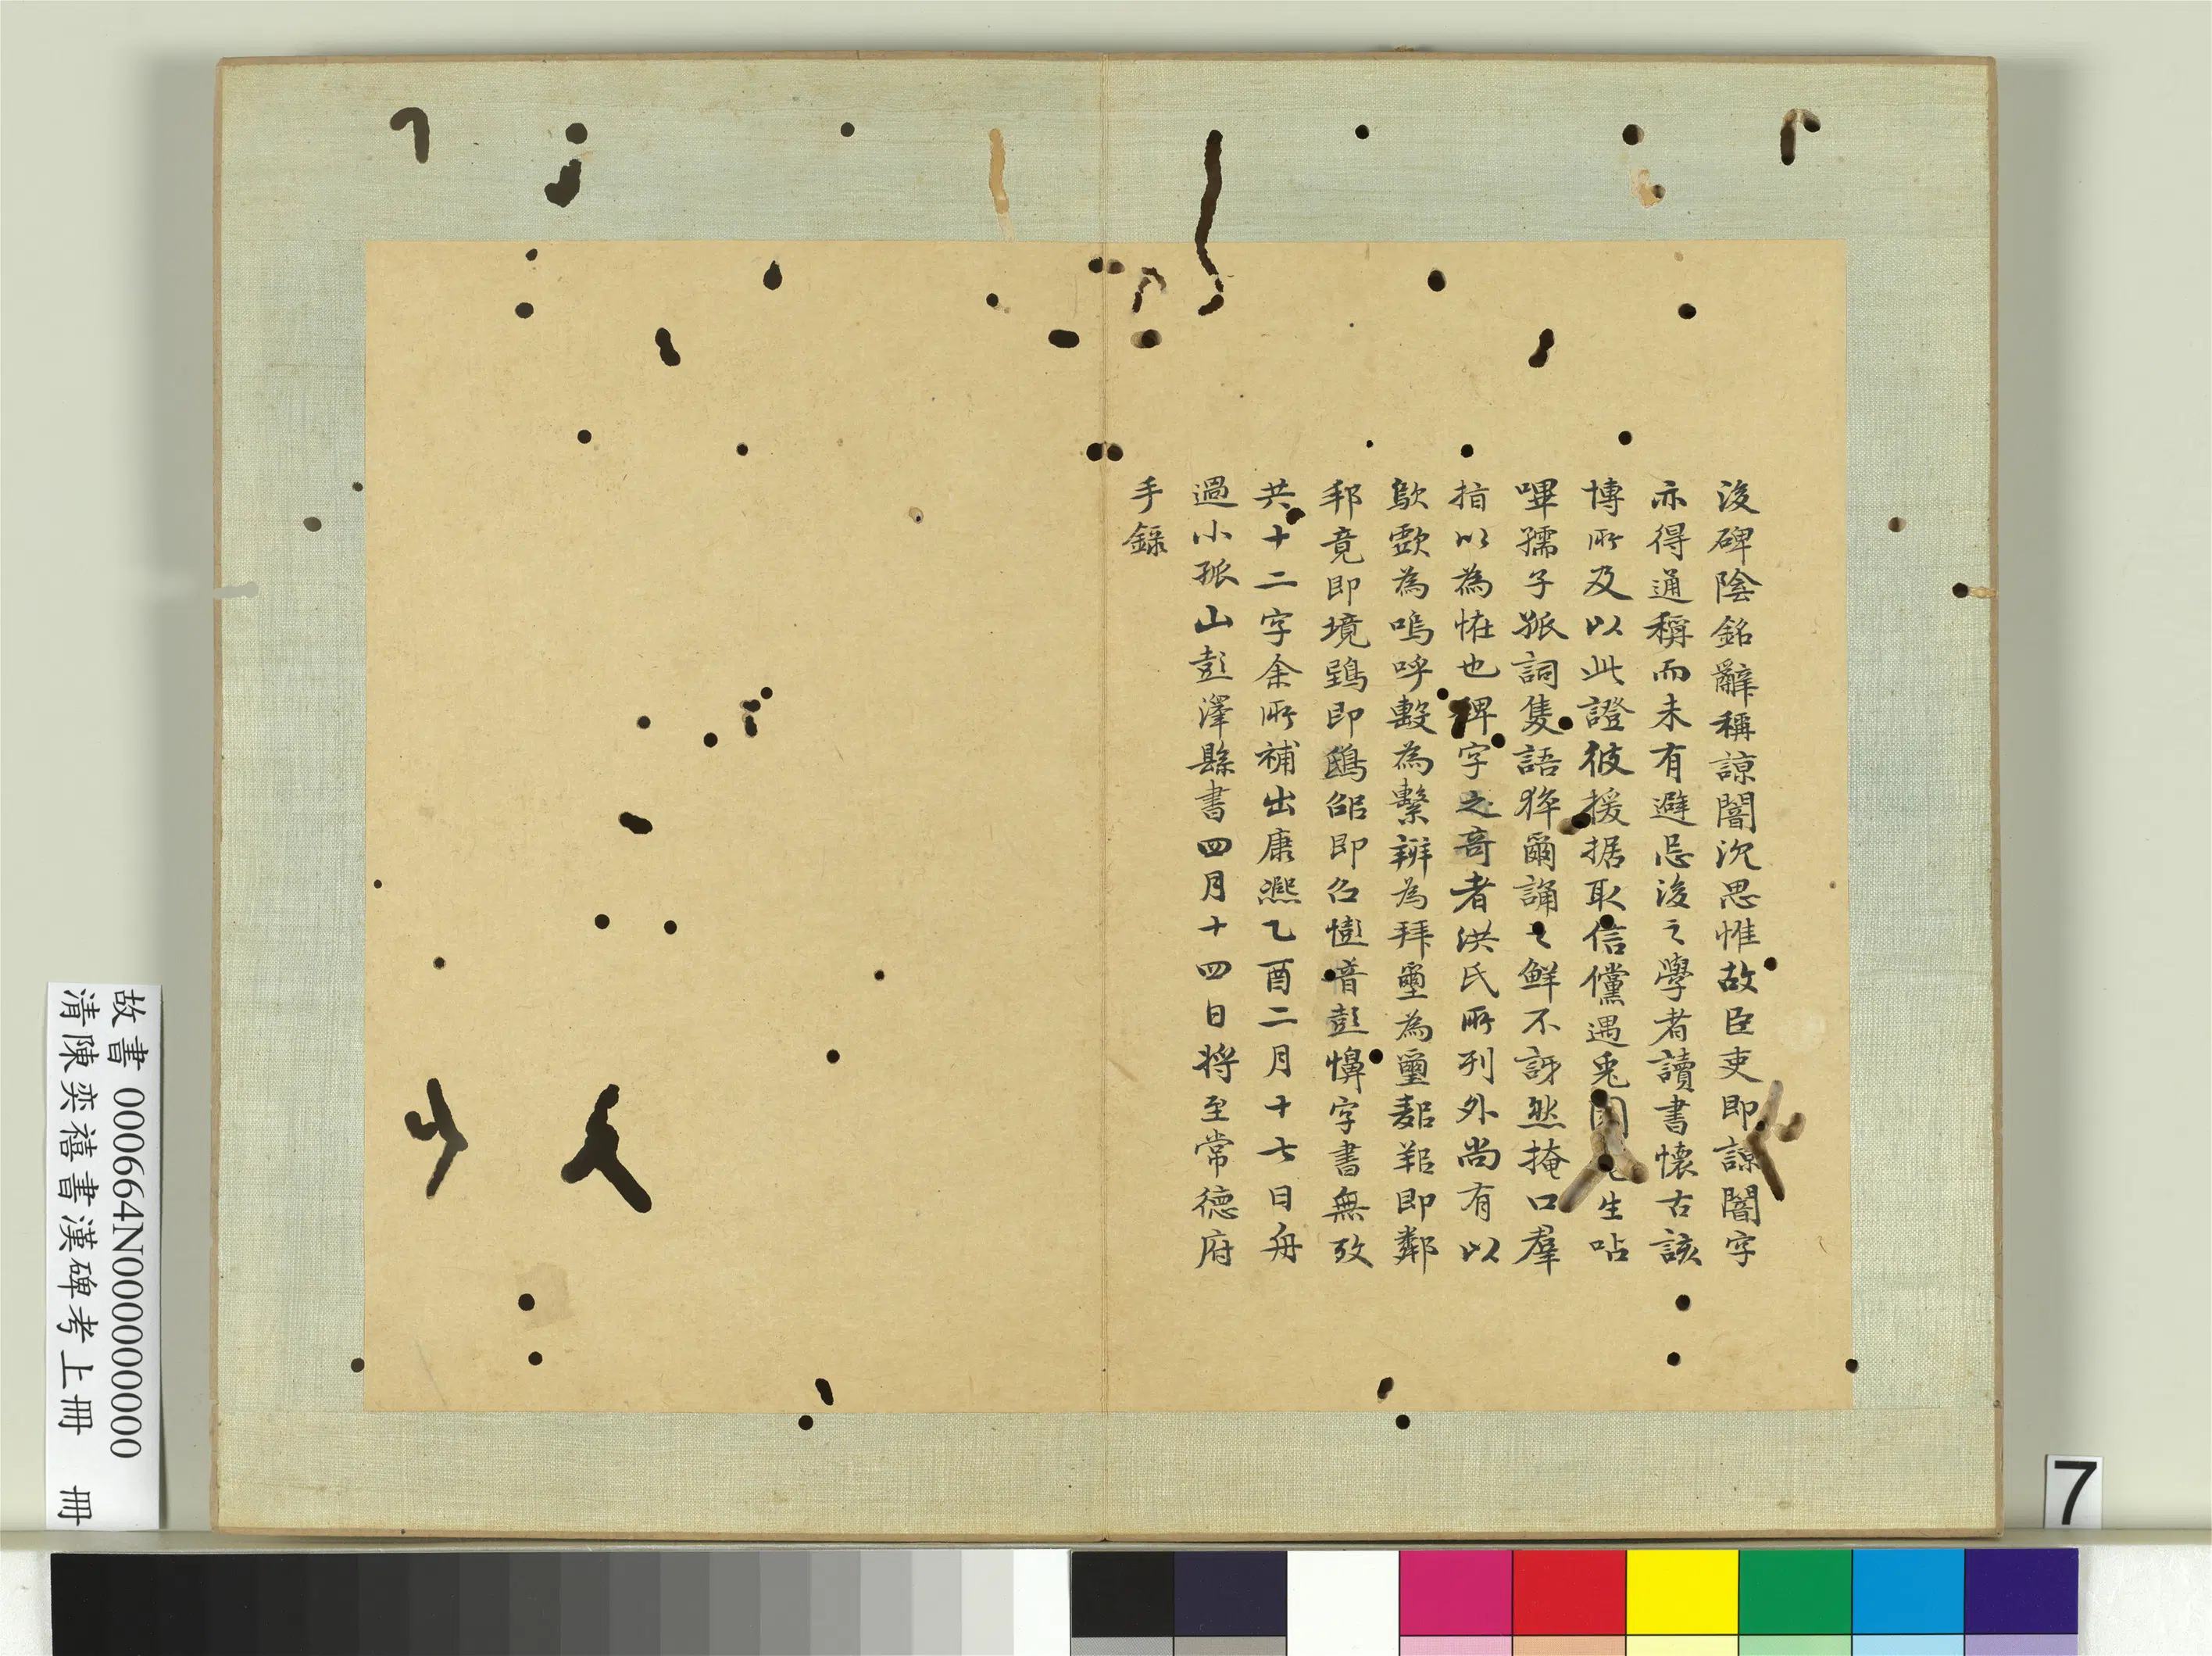 後碑陰銘辭稱諒闇沉思惟故臣吏即諒闇字
亦得通稱而未有避忌後之學者讀書懷古該
博所及以此證彼援据取信儻遇兎園生呫
嗶孺子孤詞隻語猝爾誦之鮮不訝然掩口羣
指以為怪也碑字之奇者洪氏所列外尚有以
歍歑為嗚呼墼為繫辧為拜壐為璽郒即鄰
邦竟即境鵄即鴟邵即召憉音彭字書無攷
共十二字余所補出康熙乙酉二月十七日舟
過小孤山彭澤縣書四月十四日將至常德府
手錄
故書 000664N000000000
清陳奕禧書漢碑考上冊 冊
7